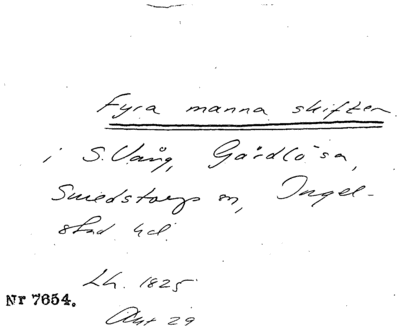 Fyra manna skiften
i S. Vång, Gårdlösa,
Smedstorps sn, Ingel-
stad hd.
Lh. 1825
Nr 7654.
Akt 29